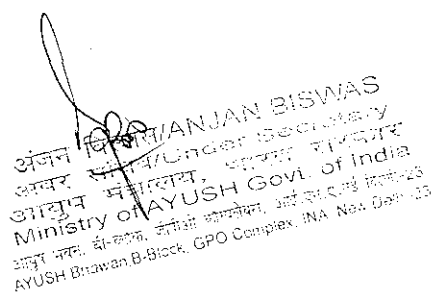 अंजन बिश्वास/ANJAN BISWAS
अवर सचिव/Under Secretary
आयुष मंत्रालय, भारत सरकार
Ministry of AYUSH Govt. of India
आयुष भवन, बी-ब्लाक, जीपीओ कॉम्पलेक्स, आई.एन.ए. नई दिल्ली-23
AYUSH Bhawan, B-Block, GPO Complex, INA, New Delhi-23